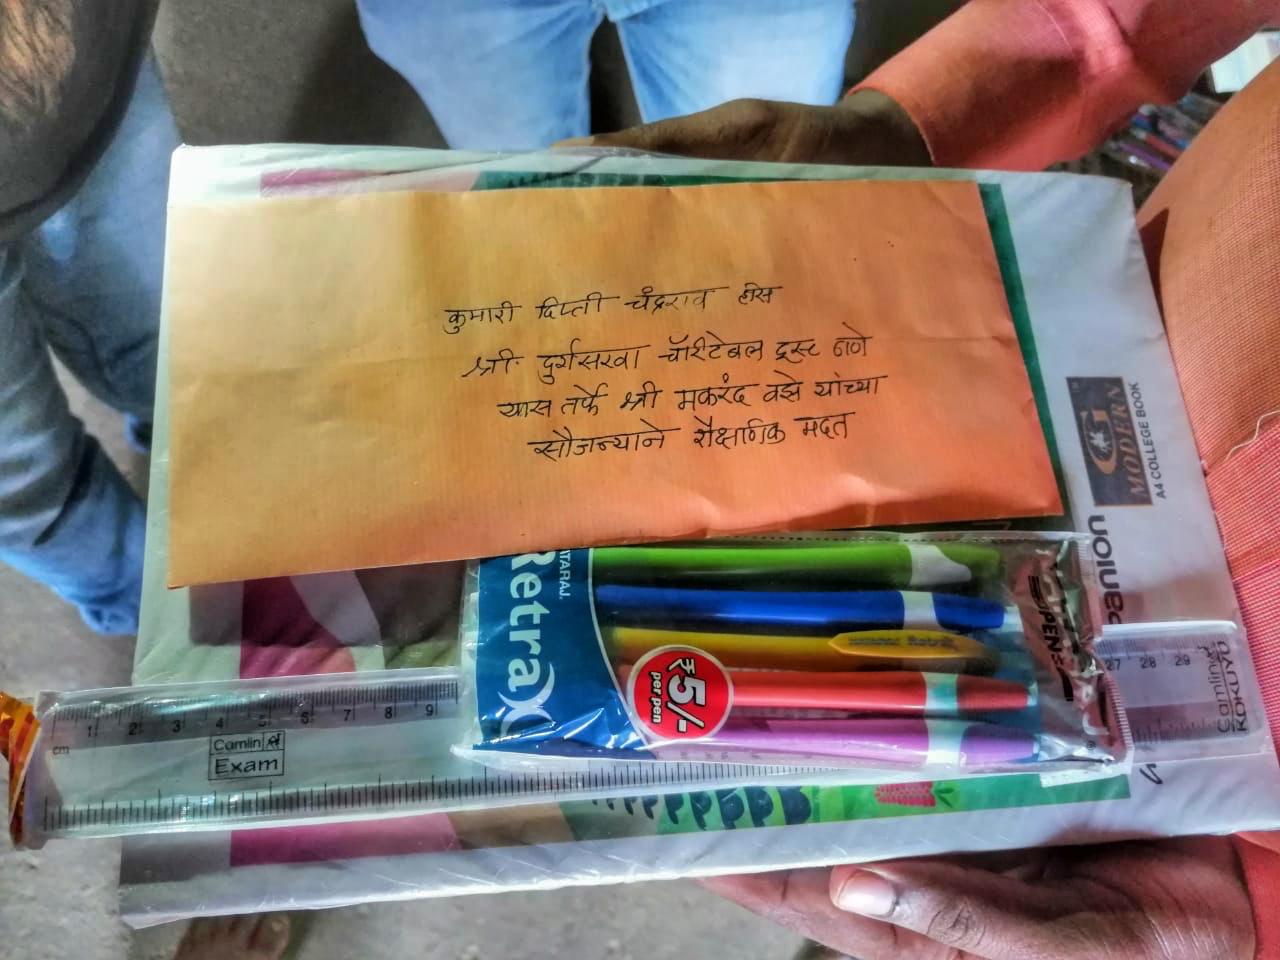 कुमारी दिप्ती चंद्रराव हीस
श्री दुर्गसखा चॅरिटेबल ट्रस्ट ठाणे
यास तर्फे श्री मकरंद वझे यांच्या
सौजन्याने शैक्षणिक मदत
MODERN
A4 COLLEGE BOOK
NATARAJ
RetraX
₹5/-
per pen
5 PENS
1 2 3 4 5 6 7 8 9
27 28 29
cm
Camlin
Exam
Camlin
KOKUYO